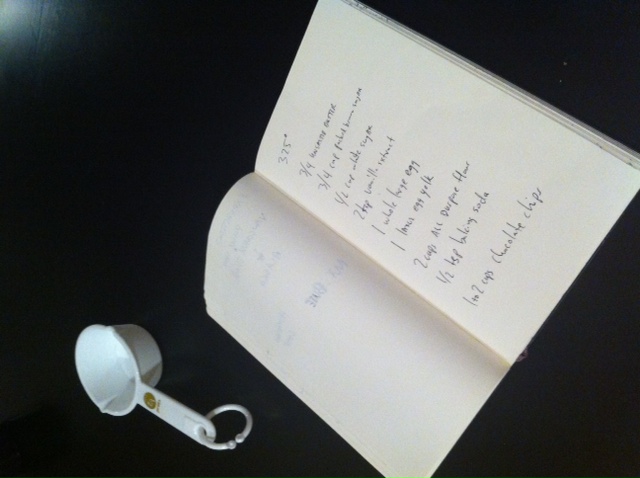 325°
3/4 unsalted butter
3/4 cup packed brown sugar
1/2 cup white sugar
2 tsp vanilla extract
1 whole large egg
1 large egg yolk
2 cups ALL purpose flour
1/2 tsp baking soda
1 to 2 cups chocolate chips